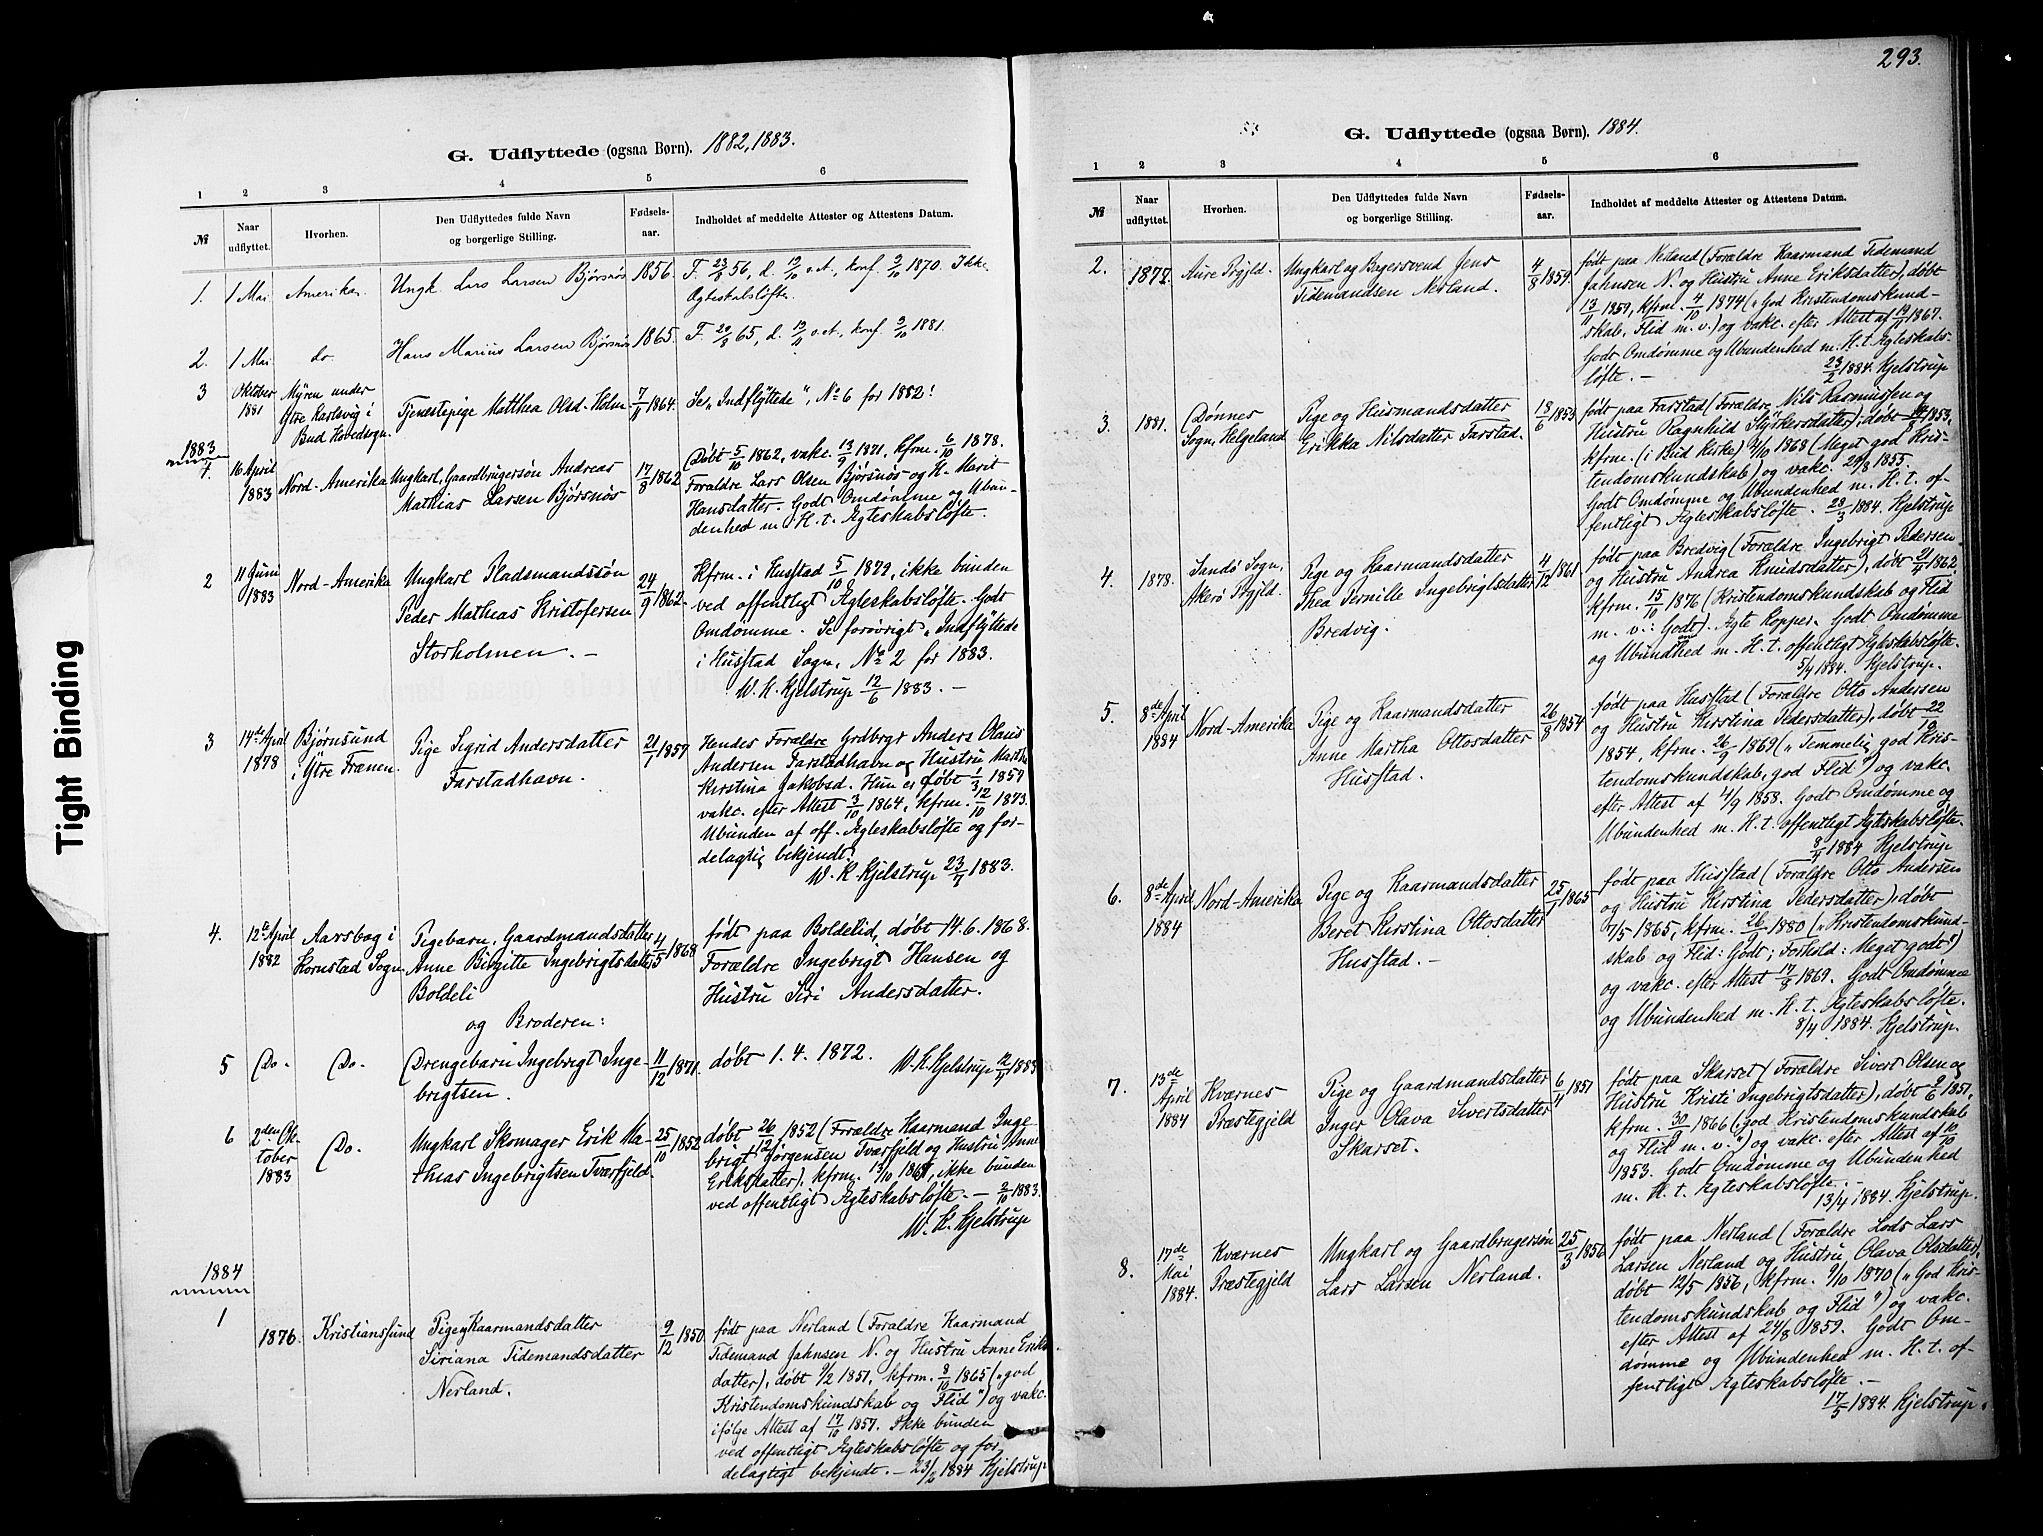 Tight Binding
G. Udflyttede (ogsaa Børn). 1882, 1883.
1 2 3 4 5 6
№ Naar udflyttet. Hvorhen. Den Udflyttedes fulde Navn og borgerlige Stilling. Fødsels-aar. Indholdet af meddelte Attester og Attestens Datum.
1. 1 Mai Amerika. Ungk. Lars Larsen Bjørsnøs 1856. F. 23/8 56, d. 19/10 s.A., konf. 9/10 1870. Ikke
Ægteskabsløfte.
2. 1 Mai do. Hans Marius Larsen Bjørsnøs 1865. F. 20/8 65, d. 19/11 s.A, konf. 9/10 1881.
3 Oktober Myren under
1881 Ytre Karlsvig i Tjenestepige Matthea Olsd. Holm 7/11 1864. Se „Indflyttede”, No 6 for 1882!
Bud Hovedsogn.
1883
1. 16 April Nord-Amerika Ungkarl, Gaardbrugersøn Andreas 17/8 1862 Døbt 5/10 1862, vakc. 13/9 1871, kfrm. 6/10 1878.
1883 Mathias Larsen Bjørsnøs Forældre Lars Olsen Bjørsnøs og H. Marit
Hansdatter. Godt Omdømme og Ubun-
denhed m. H. t. Ægteskabsløfte.
2 11 Juni Nord-Amerika Ungkarl Pladsmandssøn 24/9 1862 Kfrm. i Husstad 5/10 1879, ikke bunden
1883 Peder Mathias Kristofersen ved offentligt Ægteskabsløfte. Godt
Storholmen. — Omdømme. Se forøvrigt „Indflyttede
i Husstad Sogn, No 2 for 1883.
W. K. Kjelstrup 12/6 1883. —
3 14de April Bjørnsund Pige Sigrid Andersdatter 21/1 1857 Hendes Forældre Grdbrgr Anders Olaus
1878 i Ytre Frænen. Farstadhavn. Andersen Farstadhavn og Hustru Martha
Kerstina Jakobsd. Hun er døbt 1/3 1857
vakc. efter Attest 3/10 1864, kfrm. 12/10 1873.
Ubunden af off. Ægteskabsløfte og for-
delagtig bekjendt.
W. K. Kjelstrup 23/7 1883.
4. 12te April Aarsbog i Pigebarn, Gaardmandsdatter 4/5 1868 født paa Boldelid, døbt 14.6.1868.
1882 Kornstad Sogn Anne Birgitte Ingebrigtsdatter Forældre Ingebrigt Hansen og
Boldeli Hustru Siri Andersdatter.
og Broderen:
5 Do. Do. Drengebarn Ingebrigt Inge- 11/12 1871. døbt 1.4.1872. W. K. Kjelstrup 12/9 1883
brigtsen.
6 2den Ok- Do. Ungkarl Skomager Erik Ma- 25/10 1852 døbt 26/12 1852 (Forældre Kaarmand Inge-
tober thias Ingebrigtsen Tværfjeld. brigt Jørgensen Tværfjeld og Hustru Anne
1883 Eriksdatter), kfrm. 13/10 1867, ikke bunden
ved offentligt Ægteskabsløfte. — 2/10 1883.
W. K. Kjelstrup
1884
1 1876. Kristianssund Pige og Kaarmandsdatter 9/12 1850 født paa Nerland (Forældre Kaarmand
Siriana Tidemandsdatter Tidemand Jahnsen N. og Hustru Anne Eriks-
Nerland. datter), døbt 9/2 1851, kfrm. 8/10 1865 („god
Kristendomskundskab og Flid”) og vakc.
ifølge Attest af 17/10 1857. Ikke bunden
ved offentligt Ægteskabsløfte og for
delagtigt bekjendt. — 23/2 1884 Kjelstrup
293.
G. Udflyttede (ogsaa Børn). 1884.
1 2 3 4 5 6
№ Naar udflyttet. Hvorhen. Den Udflyttedes fulde Navn og borgerlige Stilling. Fødsels-aar. Indholdet af meddelte Attester og Attestens Datum.
2. 1877. Aure Prgjld. Ungkarl og Bagersvend Jens 4/8 1859. født paa Nerland (Forældre Kaarmand Tidemand
Tidemandsen Nerland. Jahnsen N. og Hustru Anne Eriksdatter), døbt
13/11 1859, kfrm. 4/10 1874 („God Kristendomskund-
skab, Flid m. v.) og vakc. efter Attest af 19/11 1867.
Godt Omdømme og Ubundenhed m. H. t. Ægteskabs-
løfte. — 23/2 1884. Kjelstrup
3. 1881. Dønnes Pige og Husmandsdatter 18/6 1853 født paa Farstad (Forældre Nils Rasmussen og
Sogn, Helgeland Erikka Nilsdatter Farstad. Hustru Ragnhild Flyskersdatter), døbt 1853,
kfrm. (i Bud Kirke) 9/10 1868 (Meget god Kris-
tendomskundskab) og vakc. 29/8 1855.
Godt Omdømme og Ubundenhed m. H. t. of-
fentligt Ægteskabsløfte. 28/3 1884. Kjelstrup
4. 1878. Sandø Sogn, Pige og Kaarmandsdatter 4/12 1861 født paa Bredvig (Forældre Ingebrigt Pedersen
Akerø Prgjld. Thea Pernille Ingebrigtsdatter og Hustru Andrea Knudsdatter), døbt 21/4 1862.
Bredvig. kfrm. 15/10 1876 (Kristendomskundskab og Flid
m. v.: Godt). Ægte Kopper. Godt Omdømme
og Ubundhed m. H. t. offentligt Ægteskabsløfte.
5/4 1884. Kjelstrup.
5. 8de April Nord-Amerika Pige og Kaarmandsdatter 26/8 1854 født paa Husstad (Forældre Otto Andersen
1884 Anne Martha Ottosdatter og Hustru Kerstina Pedersdatter), døbt 22/10
Husstad. 1854, kfrm. 26/9 1869 („Temmelig god Kris-
tendomskundskab, god Flid”) og vakc.
efter Attest af 4/9 1858. Godt Omdømme og
Ubundenhed m. H. t. offentligt Ægteskabsløfte.
8/4 1884 Kjelstrup
6. 8de April Nord-Amerika Pige og Kaarmandsdatter 25/1 1865 født paa Husstad (Forældre Otto Andersen
1884 Beret Kerstina Ottosdatter og Hustru Kerstina Pedersdatter) døbt
Husstad. — 7/5 1865, kfrm. 26/9 1880 („Kristendomskund-
skab og Flid: Godt; Forhold: Meget godt”)
og vakc. efter Attest 17/8 1869. Godt Omdømme
og Ubundenhed m. H. t. Ægteskabsløfte.
8/4 1884. Kjelstrup.
7. 13de April Kværnes Pige og Gaardmandsdatter 6/4 1851 født paa Skarset (Forældre Sivert Olsen og
1884 Præstegjeld Inger Olava Sivertsdatter Hustru Kristi Ingebrigtsdatter), døbt 9/6 1851,
Skarset. kfrm. 30/9 1866 (God Kristendomskundskab
og Flid m. v.”) og vakc. efter Attest af 10/10
1853. Godt Omdømme og Ubundenhed
m. H. t. Ægteskabsløfte. —
13/4 1884. Kjelstrup.
8. 17de Mai Kværnes Ungkarl og Gaardbrugersøn 25/3 1856 født paa Nerland (Forældre Lods Lars
1884. Præstegjeld Lars Larsen Nerland. Larsen Nerland og Hustru Olava Olsdatter),
døbt 12/5 1856, kfrm. 9/10 1870 („God Kris-
tendomskundskab og Flid”) og vakc.
efter Attest af 24/8 1859. Godt Om-
dømme og Ubundenhed m. H. t. of-
fentligt Ægteskabsløfte. —
17/5 1884. Kjelstrup.